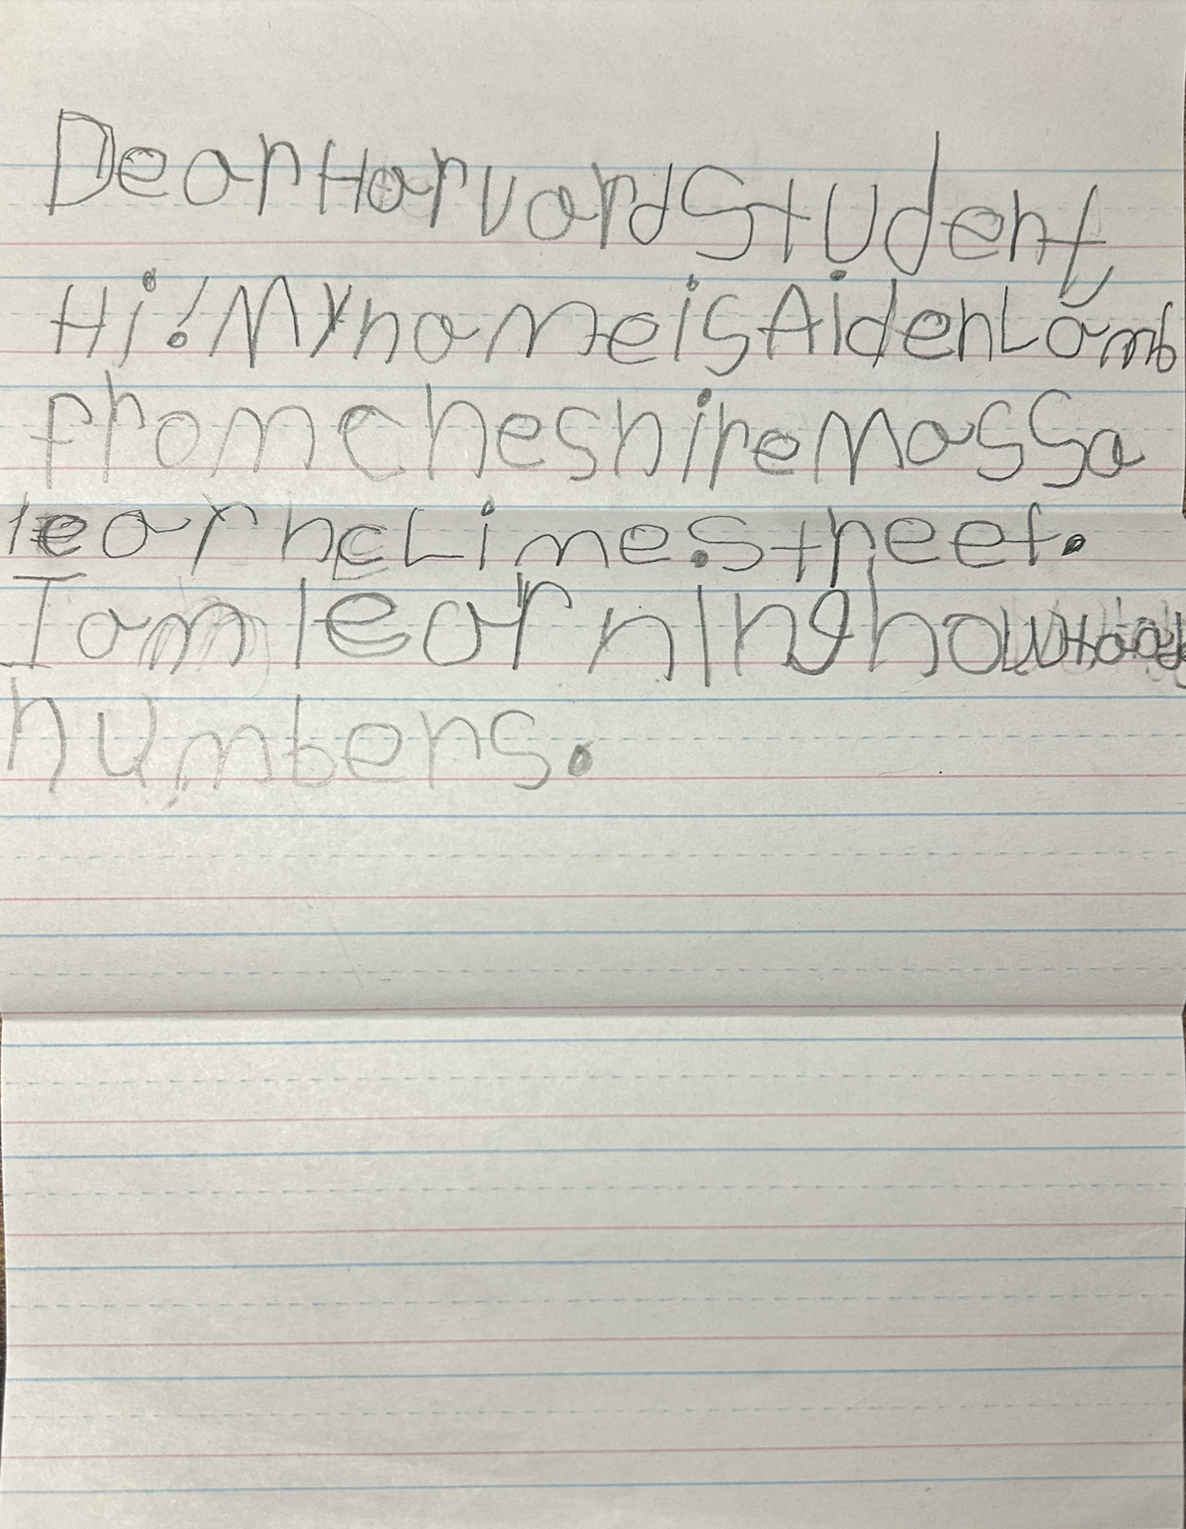 Dear Harvard Student,
Hi! My name is Aiden Lamb
from cheshire Massa
learnc Lime. Street.
I am learning how to add
numbers.